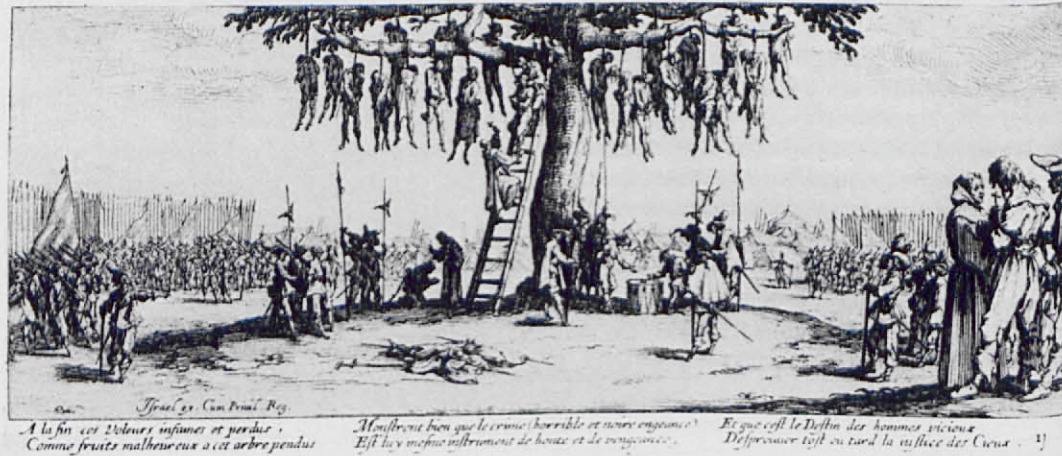 Israel ex. Cum Privil. Reg.
A la fin ces Voleurs infames et perdus,
Comme fruits malheureux a cet arbre pendus
Monstrent bien que le crime (horrible et noire engeance)
Est luy mesme instrument de honte et de vengeance,
Et que cest le Destin des hommes vicieux
Desprouver tost ou tard la iustice des Cieux.